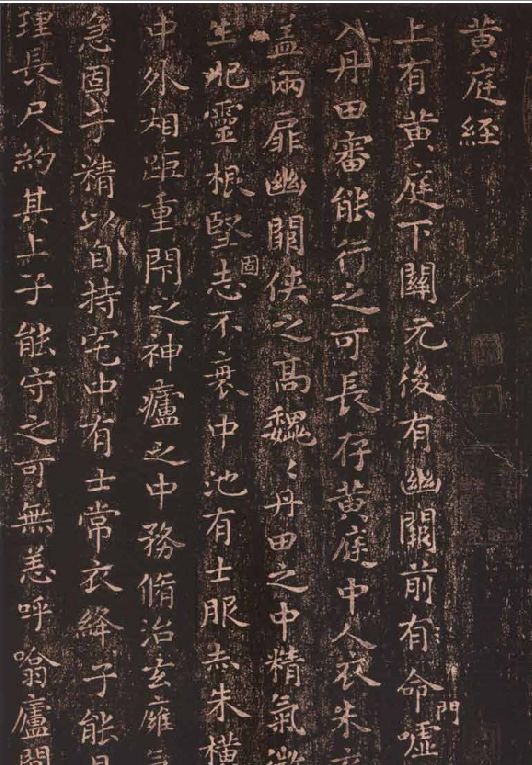 黄庭經
上有黄庭下關元後有幽闕前有命門嘘
入丹田審能行之可長存黄庭中人衣朱
盖兩扉幽闕侠之高魏〻丹田之中精氣微
生肥靈根堅固志不衰中池有士服赤朱横
中外相距重閇之神廬之中務脩治玄癰
急固子精以自持宅中有士常衣絳子能
理長尺約其上子能守之可無恙呼噏廬間